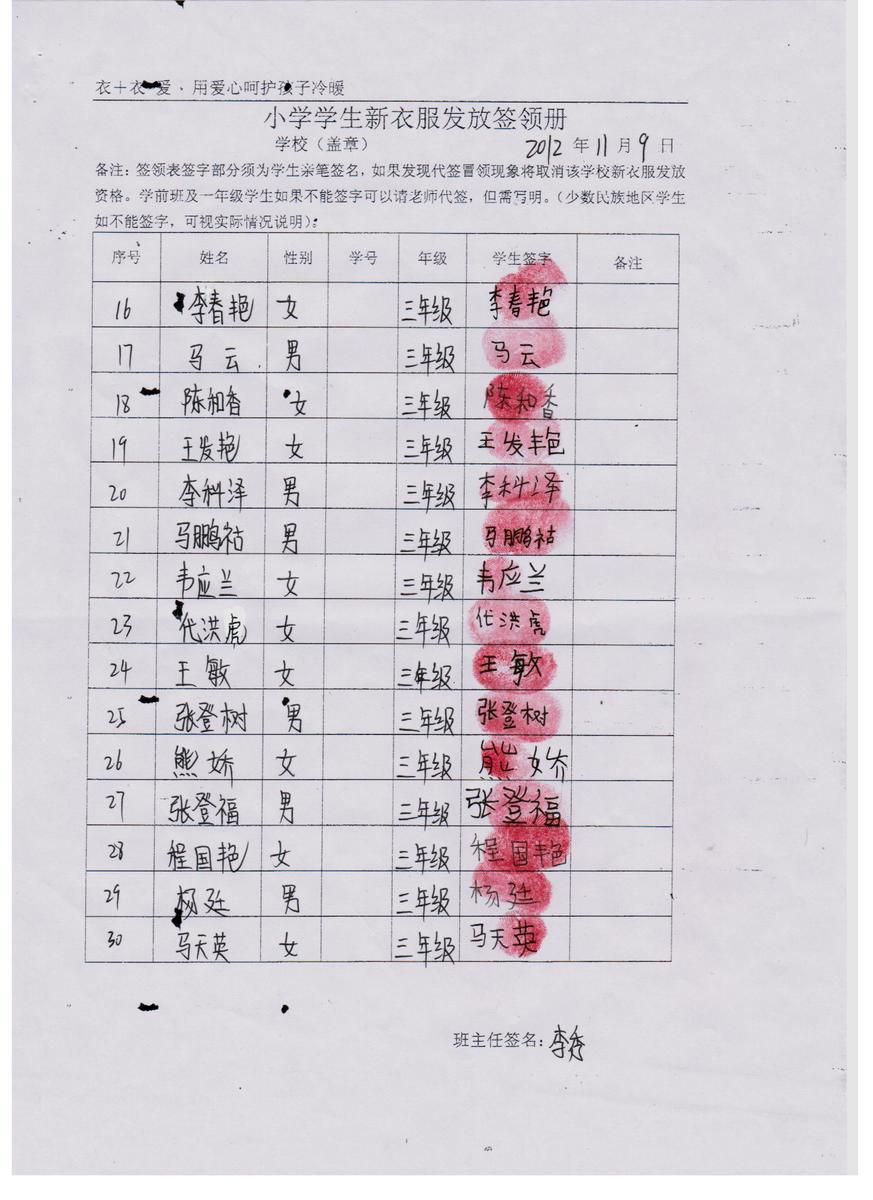 衣+衣 爱、用爱心呵护孩子冷暖
小学学生新衣服发放签领册
学校（盖章） 2012 年 11 月 9 日
备注：签领表签字部分须为学生亲笔签名，如果发现代签冒领现象将取消该学校新衣服发放
资格。学前班及一年级学生如果不能签字可以请老师代签，但需写明。（少数民族地区学生
如不能签字，可视实际情况说明）：
序号 姓名 性别 学号 年级 学生签字 备注
16 李春艳 女 三年级 李春艳
17 马云 男 三年级 马云
18 陈和香 女 三年级 陈和香
19 王发艳 女 三年级 王发艳
20 李科泽 男 三年级 李科泽
21 马鹏祜 男 三年级 马鹏祜
22 韦应兰 女 三年级 韦应兰
23 代洪虎 女 三年级 代洪虎
24 王敏 女 三年级 王敏
25 张登树 男 三年级 张登树
26 熊娇 女 三年级 熊娇
27 张登福 男 三年级 张登福
28 程国艳 女 三年级 程国艳
29 杨廷 男 三年级 杨廷
30 马天英 女 三年级 马天英
班主任签名：李秀